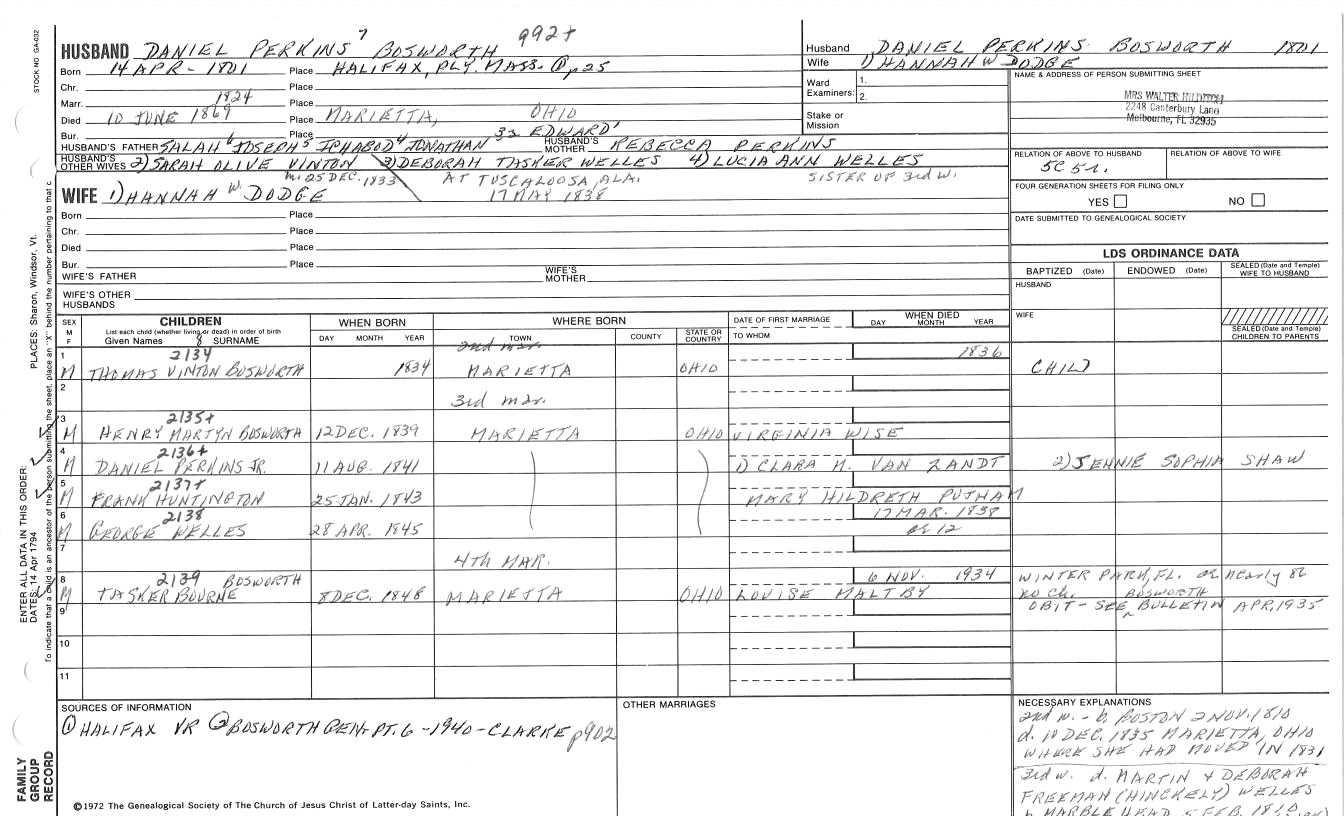 STOCK NO GA-032
HUSBAND DANIEL PERKINS 7 BOSWORTH 992+
Born 14 APR - 1801 Place HALIFAX, PLY. MASS. ① p25
Chr. Place
Marr. 1824 Place
Died 10 JUNE 1869 Place MARIETTA, OHIO
Bur. Place
HUSBAND'S FATHER SALAH 6 JOSEPH 5 ICHABOD 4 JONATHAN 32 EDWARD 1 HUSBAND'S MOTHER REBECCA PERKINS
HUSBAND'S OTHER WIVES 2) SARAH OLIVE VINTON 3) DEBORAH TASKER WELLES 4) LUCIA ANN WELLES
m. 25 DEC. 1833 AT TUSCALOOSA, ALA. SISTER OF 3rd W.
17 MAY 1838
WIFE 1) HANNAH W. DODGE
Born Place
Chr. Place
Died Place
Bur. Place
WIFE'S FATHER WIFE'S MOTHER
WIFE'S OTHER HUSBANDS
Husband DANIEL PERKINS BOSWORTH 1801
Wife 1) HANNAH W DODGE
Ward Examiners: 1. 2.
Stake or Mission
NAME & ADDRESS OF PERSON SUBMITTING SHEET
MRS WALTER
2248 Canterbury Lane
Melbourne, FL 32935
RELATION OF ABOVE TO HUSBAND RELATION OF ABOVE TO WIFE
5C 5r.
FOUR GENERATION SHEETS FOR FILING ONLY
YES NO
DATE SUBMITTED TO GENEALOGICAL SOCIETY
LDS ORDINANCE DATA
BAPTIZED (Date) ENDOWED (Date) SEALED (Date and Temple) WIFE TO HUSBAND
HUSBAND
WIFE
SEALED (Date and Temple) CHILDREN TO PARENTS
SEX M F CHILDREN WHEN BORN WHERE BORN DATE OF FIRST MARRIAGE WHEN DIED
List each child (whether living or dead) in order of birth
Given Names 8 SURNAME DAY MONTH YEAR TOWN COUNTY STATE OR COUNTRY TO WHOM DAY MONTH YEAR
2nd mar.
1 2134 1836
M THOMAS VINTON BOSWORTH 1834 MARIETTA OHIO CHILD
2
3rd mar.
3 2135+
M HENRY MARTYN BOSWORTH 12 DEC. 1839 MARIETTA OHIO VIRGINIA WISE
4 2136+
M DANIEL PERKINS JR. 11 AUG. 1841 1) CLARA M. VAN ZANDT 2) JENNIE SOPHIA SHAW
5 2137+
M FRANK HUNTINGTON 25 JAN. 1843 MARY HILDRETH PUTNAM
6 2138 17 MAR. 1858
M GEORGE WELLES 28 APR. 1845 ae 12
7
4TH MAR.
8 2139 BOSWORTH 6 NOV. 1934 WINTER PARK, FL. ae nearly 86
M TASKER BOURNE 8 DEC. 1848 MARIETTA OHIO LOUISE MALTBY no ch. BOSWORTH
9 OBIT - SEE ^ BULLETIN APR, 1935
10
11
SOURCES OF INFORMATION
① HALIFAX VR ② BOSWORTH GEN. PT. 6 - 1940 - CLARKE p902
OTHER MARRIAGES
NECESSARY EXPLANATIONS
2nd w. - b. BOSTON 2 NOV. 1810
d. 10 DEC. 1835 MARIETTA, OHIO
WHERE SHE HAD MOVED IN 1831
3rd w. d. MARTIN & DEBORAH
FREEMAN (HINCKELY) WELLES
b. MARBLEHEAD 5 FEB. 1810
©1972 The Genealogical Society of The Church of Jesus Christ of Latter-day Saints, Inc.
FAMILY GROUP RECORD
ENTER ALL DATA IN THIS ORDER:
DATES: 14 Apr 1794
PLACES: Sharon, Windsor, Vt.
To indicate that a child is an ancestor of the person submitting the sheet, place an "X" behind the number pertaining to that c